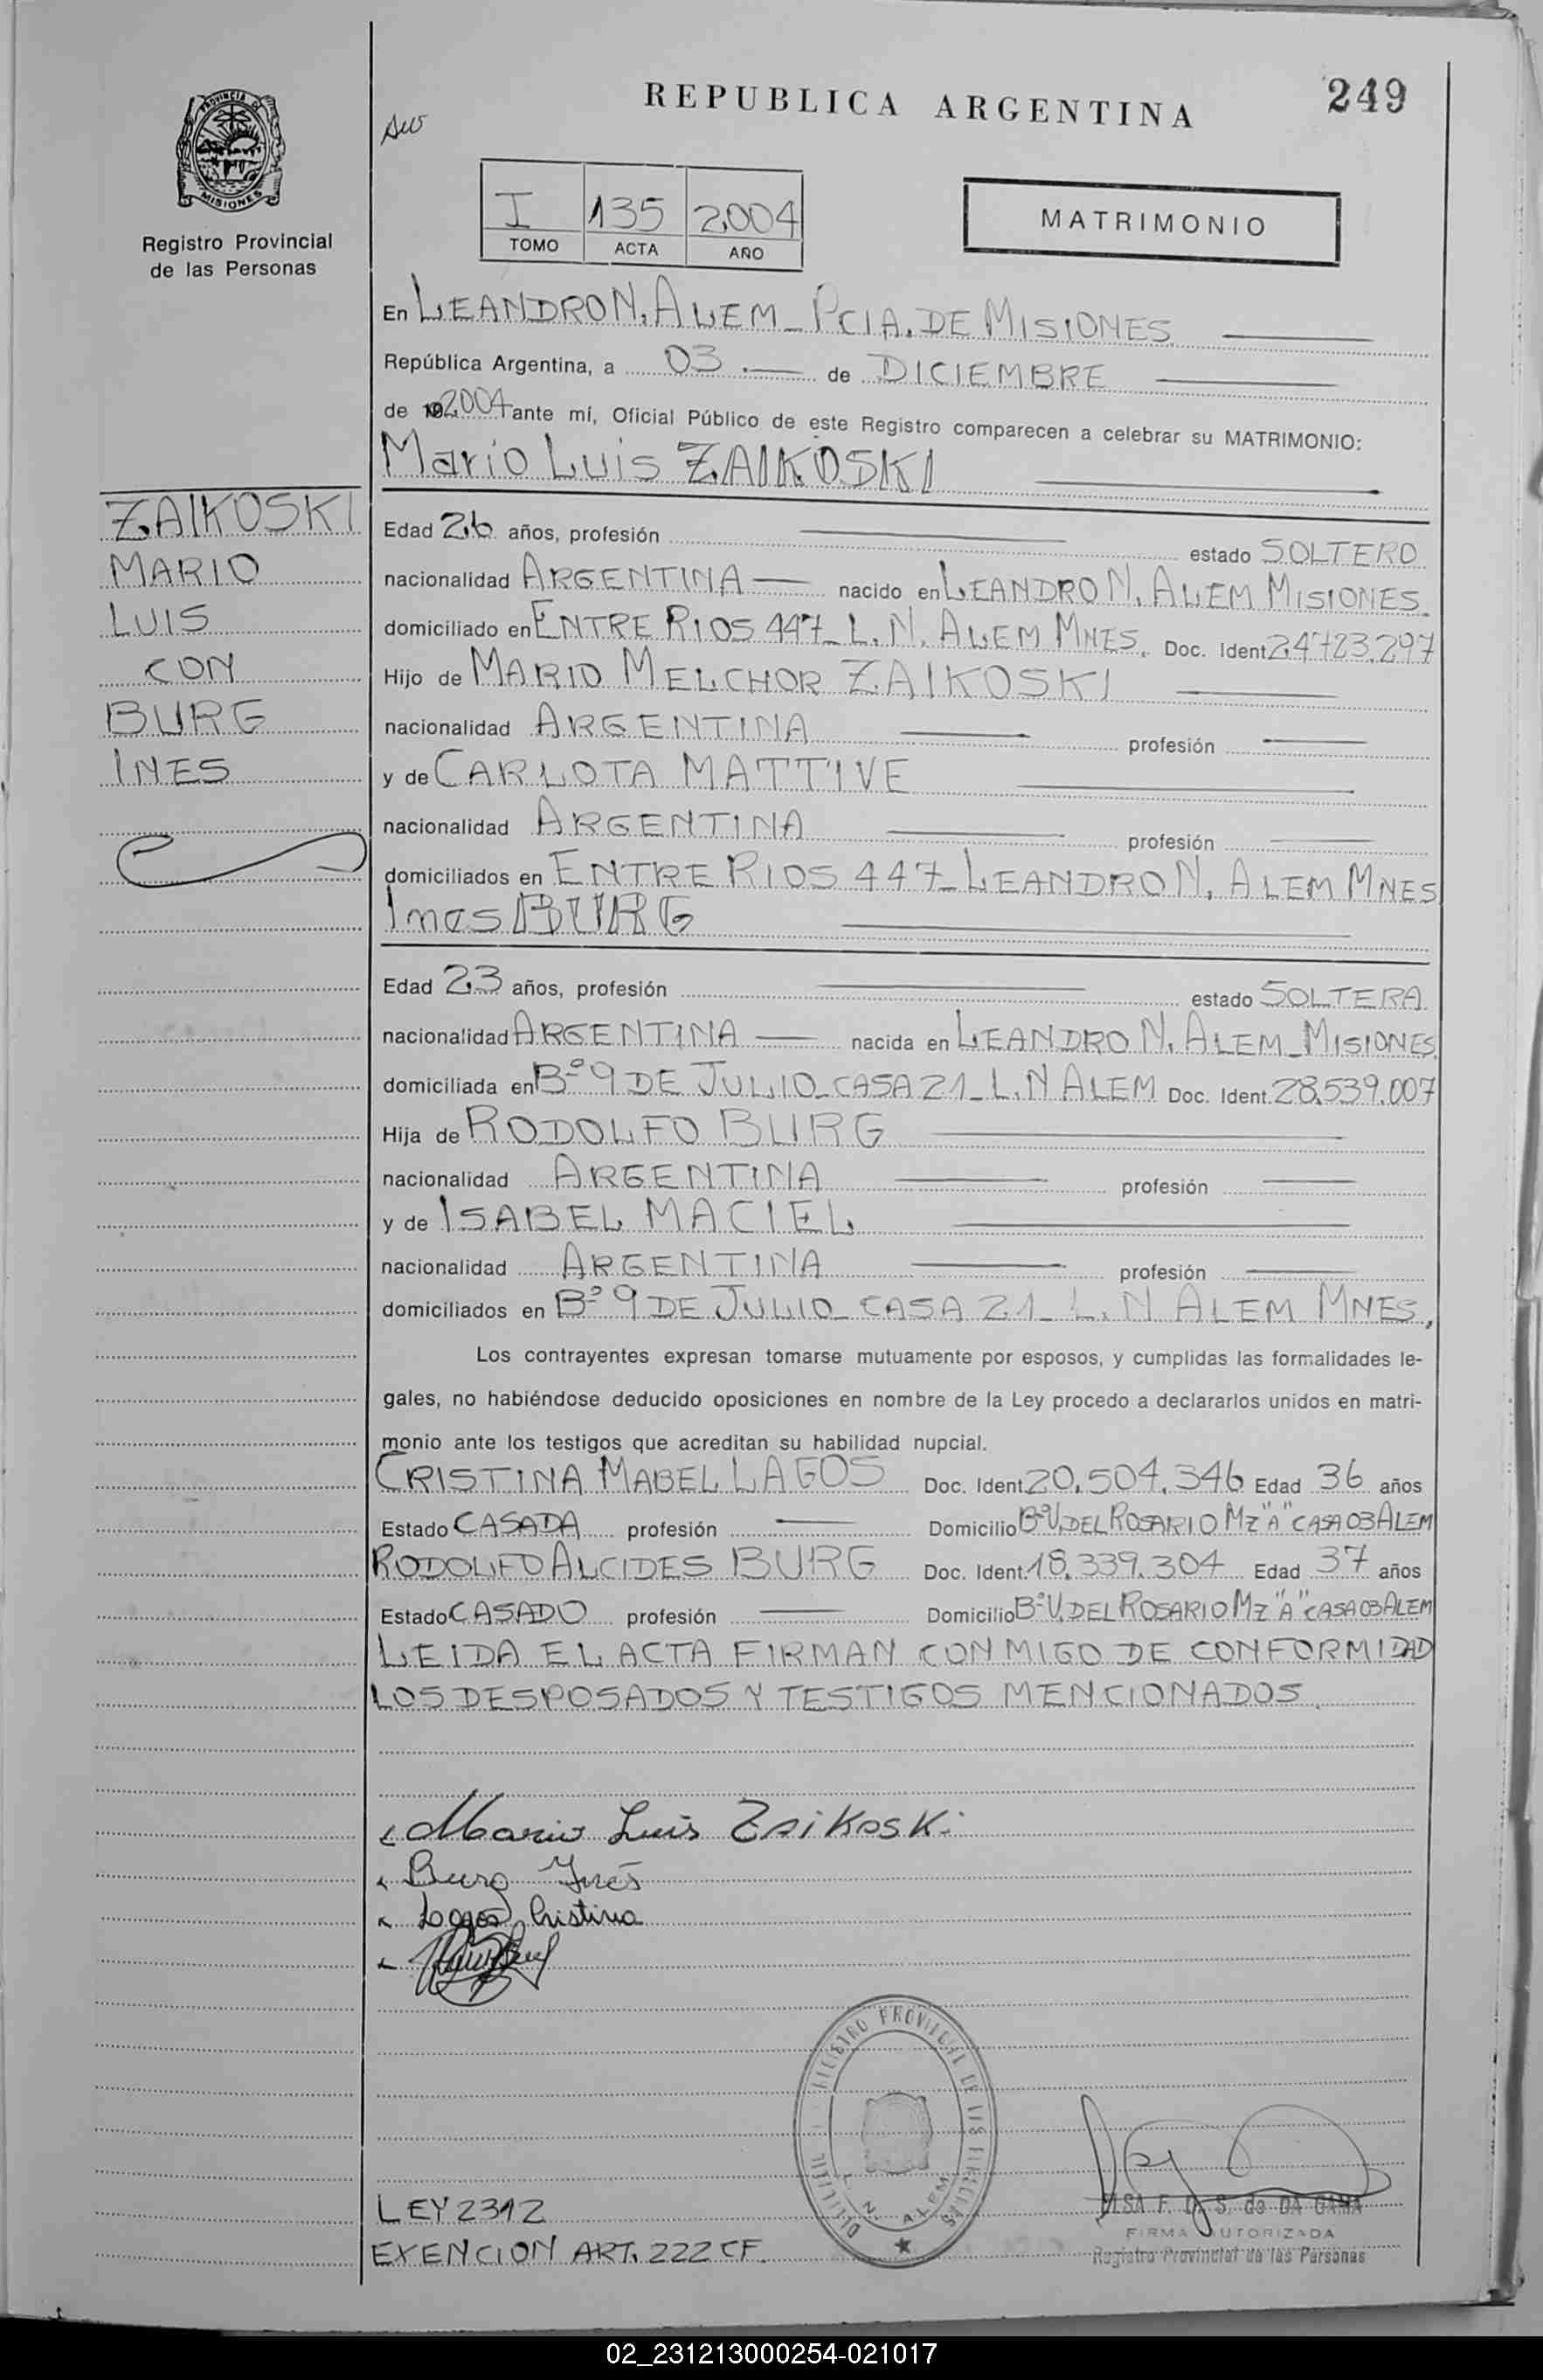 REPUBLICA ARGENTINA
249
PROVINCIA DE
MISIONES
Registro Provincial
de las Personas
I 135 2004
TOMO ACTA AÑO
MATRIMONIO
En LEANDRO N. ALEM - PCIA. DE MISIONES
República Argentina, a 03 de DICIEMBRE
de 19 2004 ante mí, Oficial Público de este Registro comparecen a celebrar su MATRIMONIO:
Mario Luis ZAIKOSKI
ZAIKOSKI
MARIO
LUIS
CON
BURG
INES
Edad 26 años, profesión estado SOLTERO
nacionalidad ARGENTINA nacido en LEANDRO N. ALEM MISIONES
domiciliado en ENTRE RIOS 447 - L. N. ALEM MNES. Doc. Ident. 24.723.297
Hijo de MARIO MELCHOR ZAIKOSKI
nacionalidad ARGENTINA profesión
y de CARLOTA MATTIVE
nacionalidad ARGENTINA profesión
domiciliados en ENTRE RIOS 447 - LEANDRO N. ALEM MNES
Ines BURG
Edad 23 años, profesión estado SOLTERA
nacionalidad ARGENTINA nacida en LEANDRO N. ALEM - MISIONES
domiciliada en Bº 9 DE JULIO - CASA 21 - L. N ALEM Doc. Ident. 28.539.007
Hija de RODOLFO BURG
nacionalidad ARGENTINA profesión
y de ISABEL MACIEL
nacionalidad ARGENTINA profesión
domiciliados en Bº 9 DE JULIO - CASA 21 - L. N ALEM MNES.
Los contrayentes expresan tomarse mutuamente por esposos, y cumplidas las formalidades le-
gales, no habiéndose deducido oposiciones en nombre de la Ley procedo a declararlos unidos en matri-
monio ante los testigos que acreditan su habilidad nupcial.
CRISTINA MABEL LAGOS Doc. Ident. 20.504.346 Edad 36 años
Estado CASADA profesión Domicilio Bº V. DEL ROSARIO MZ "A" CASA 03 ALEM
RODOLFO ALCIDES BURG Doc. Ident. 18.339.304 Edad 37 años
Estado CASADO profesión Domicilio Bº V. DEL ROSARIO MZ "A" CASA 03 ALEM
LEIDA EL ACTA FIRMAN CONMIGO DE CONFORMIDAD
LOS DESPOSADOS Y TESTIGOS MENCIONADOS.
Mario Luis Zaikoski
Burg Inés
Lagos Cristina
REGISTRO PROVINCIAL DE LAS PERSONAS
L. N. ALEM
LEY 2312
EXENCION ART. 222 CF.
ELSA F. D. S. de DA GAMA
FIRMA AUTORIZADA
Registro Provincial de las Personas
02_231213000254-021017